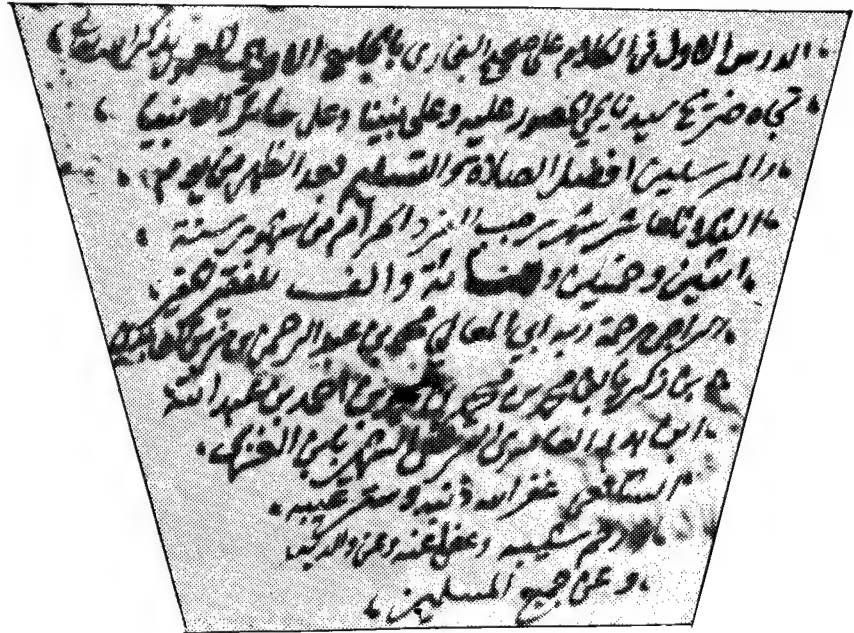 الدرس الاول في الكلام على صحيح البخاري بالجامع الاموي المعمور بذكر الله تعالى
تجاه ضريح سيدنا يحيى الحصور عليه وعلى نبينا وعلى سائر الانبيا
والمرسلين افضل الصلاة والتسليم بعد الظهر من يوم
الثلاثا عاشر شهر رجب الفرد الحرام من شهور سنة
اثنين وخمسين ومائة والف للفقير الحقير
الراجي رحمة ربه ابي المعالي محمد بن عبد الرحمن بن
بن زكريا بن محمد بن محمد بن احمد بن عبد الله
ابن العامري الشهير بابن الغزي
غفر الله ذنبه وستر عيبه
ورحم شيبه وعفى عنه وعن والديه
وعن جميع المسلمين